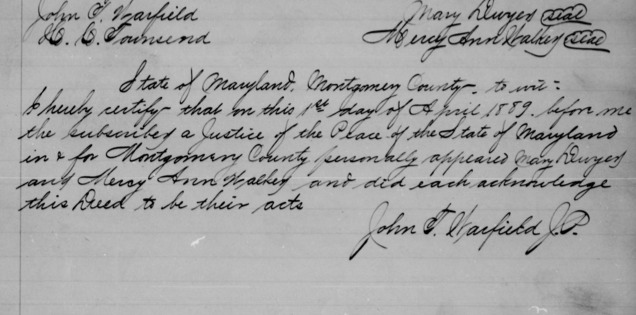 John T. Warfield Mary Dwyer seal
H. C. Townsend Mercy Ann Walker seal
State of Maryland, Montgomery County, to wit:
I hereby certify that on this 1st day of April 1889. before me
the subscriber a Justice of the Peace of the State of Maryland
in & for Montgomery County personally appeared Mary Dwyer
and Mercy Ann Walker and did each acknowledge
this Deed to be their acts
John T. Warfield J.P.